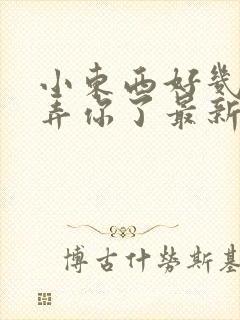 小東西好幾
弄你了最新
博古什勞斯基